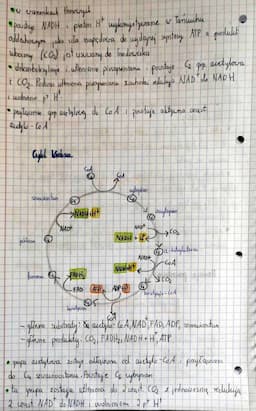 • w warunkach tlenowych
• powstaje NADH i proton H⁺ wykorzystywane w łańcuchu
oddechowym jako siła napędowa do wydajnej syntezy ATP a produkt
uboczny (CO₂) jest usuwany do środowiska
• dekarboksylacja i utlenianie pirogronianu powstaje C₂ gr. acetylowa
i CO₂. Podczas utleniania pirogronianu zachodzi redukcja NAD⁺ do NADH
i uwolnienie p⁺ H⁺
• przyłączenie grp acetylowej do CoA i powstaje aktywna cząst.
acetylo-CoA
Cykl Krebsa
CoA
cytrynian
szczawiooctan
izocytrynian
NADH+H⁺
NAD⁺
NAD⁺
CO₂
NADH+H⁺
NAD⁺
CoA
NADH+H⁺
CO₂
FADH₂
FAD
ATP
ADP
fumaran
bursztynian
bursztynylo-CoA
- główne substraty: acetylo CoA, NAD⁺, FAD, ADP, szczawiooctan
- główne produkty: CO₂, FADH₂, NADH+H⁺, ATP
• grupa acetylowa zostaje odłączona od acetylo-CoA i przyłączona
do C₄ szczawiooctanu. Powstaje C₆ cytrynian
• Ta grupa zostaje utleniona do 2 cząst. CO₂ z jednoczesną redukcją
2 cząst. NAD⁺ do NADH i uwolnieniem 2 p⁺ H⁺